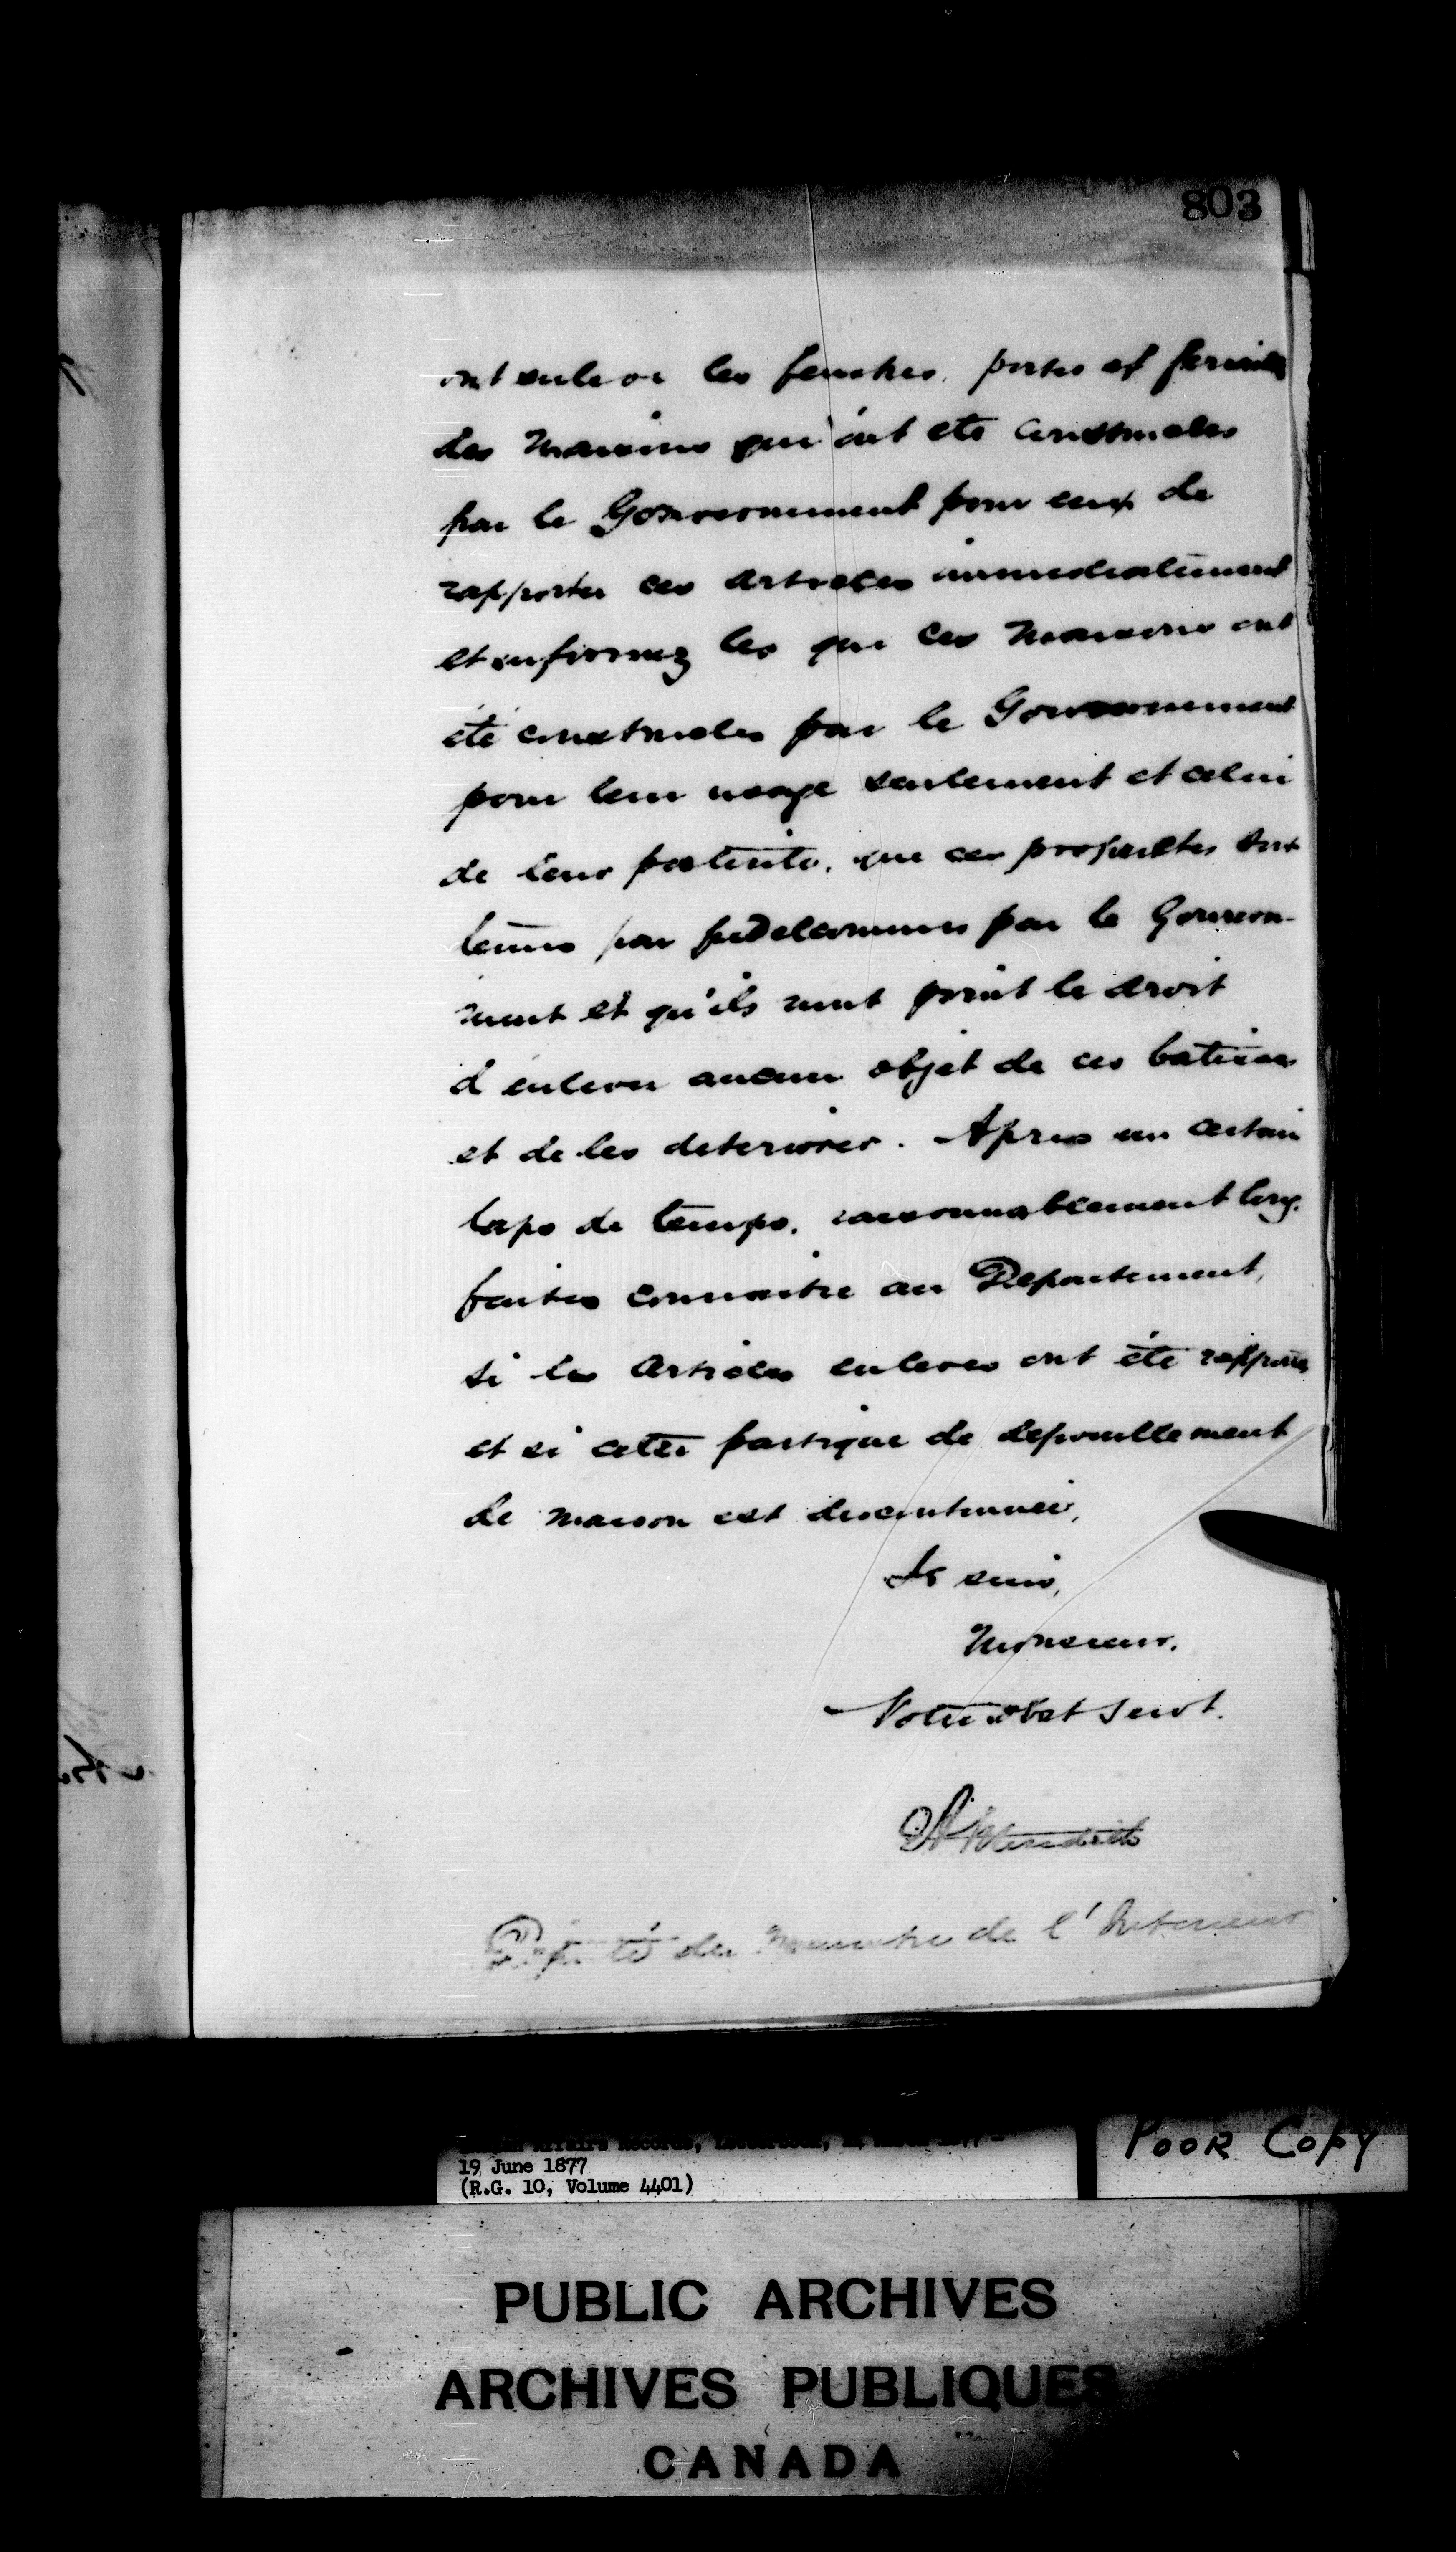 803
ont enlevé les fenetres, portes et
des maisons qui ont été construites
par le Gouvernement pour eux de
rapporter ces articles immediatement
et informez les que ces maisons ont
été construites par le Gouvernement
pour leur usage seulement et celui
de leur que ces proprietes sont
tenues par fideicommis par le Gouvern-
ment et qu'ils n'ont point le droit
d'enlever aucun objet de ces batisses
et de les deteriorer. Apres un certain
laps de temps, raisonnablement long,
faites connaitre au Departement,
si les articles enleves ont été rapportés
et si cette pratique de depouillement
de maison est discontinuée,
Je suis,
Monsieur,
Votre obt Servt.
Député du Ministre de l'Interieur
19 June 1877
(R.G. 10, Volume 4401)
POOR COPY
PUBLIC ARCHIVES
ARCHIVES PUBLIQUES
CANADA